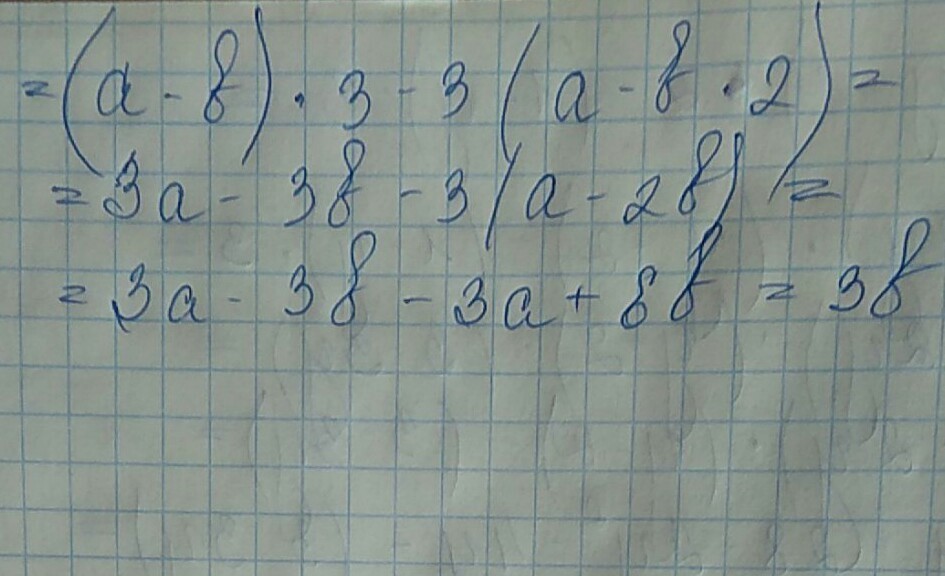 =(a-b)·3-3(a-b·2)=
=3a-3b-3(a-2b)=
=3a-3b-3a+6b=3b